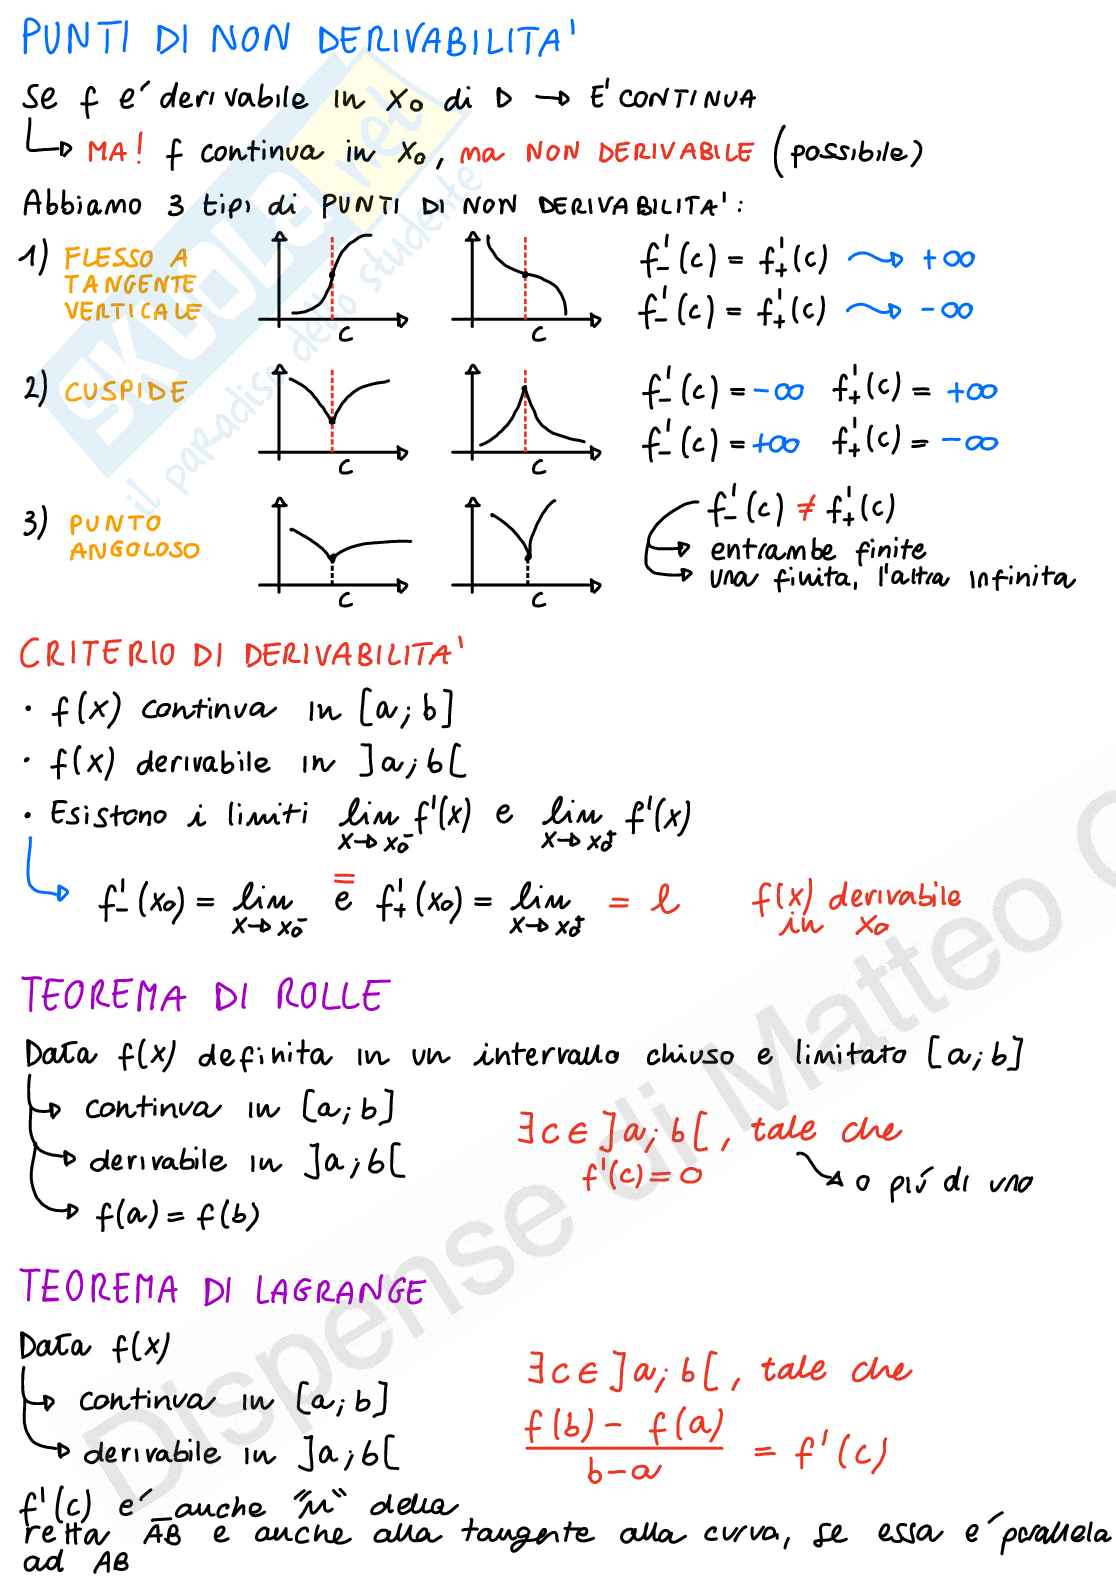 PUNTI DI NON DERIVABILITA'
Se f e' derivabile in x₀ di D → E' CONTINUA
MA! f continua in x₀, ma NON DERIVABILE (possibile)
Abbiamo 3 tipi di PUNTI DI NON DERIVABILITA':
1) FLESSO A TANGENTE VERTICALE
c
c
f'₋(c) = f'₊(c) → +∞
f'₋(c) = f'₊(c) → -∞
2) CUSPIDE
c
c
f'₋(c) = -∞ f'₊(c) = +∞
f'₋(c) = +∞ f'₊(c) = -∞
3) PUNTO ANGOLOSO
c
c
f'₋(c) ≠ f'₊(c)
→ entrambe finite
→ una finita, l'altra infinita
CRITERIO DI DERIVABILITA'
· f(x) continua in [a;b]
· f(x) derivabile in ]a;b[
· Esistono i limiti lim x→x₀⁻ f'(x) e lim x→x₀⁺ f'(x)
f'₋(x₀) = lim x→x₀⁻ = e f'₊(x₀) = lim x→x₀⁺ = l f(x) derivabile in x₀
TEOREMA DI ROLLE
Data f(x) definita in un intervallo chiuso e limitato [a;b]
→ continua in [a;b]
→ derivabile in ]a;b[
→ f(a) = f(b)
∃c∈]a;b[, tale che
f'(c) = 0
→ o piú di uno
TEOREMA DI LAGRANGE
Data f(x)
→ continua in [a;b]
→ derivabile in ]a;b[
∃c∈]a;b[, tale che
f(b) - f(a) / b-a = f'(c)
f'(c) e' anche "m" della
retta AB e anche alla tangente alla curva, se essa e' parallela
ad AB
SKUOLA.net
il paradiso dello studente
Dispense di Matteo C